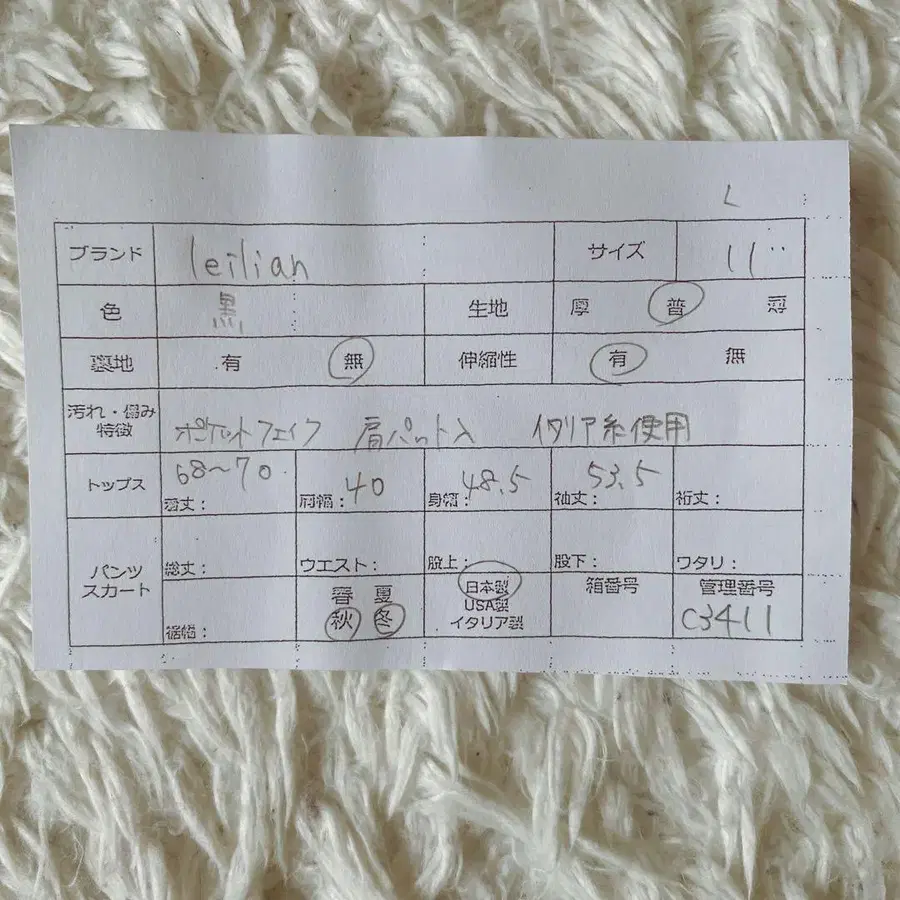 L
ブランド leilian サイズ 11
色 黒 生地 厚 普 薄
裏地 有 無 伸縮性 有 無
汚れ・傷み
特徴 ポケットフェイク 肩パット入 イタリア糸使用
トップス 68〜70 着丈: 肩幅:40 身幅:48.5 袖丈:53.5 裄丈:
パンツ
スカート 総丈: ウエスト: 股上: 股下: ワタリ:
裾幅: 春 夏 秋 冬 日本製 USA製 イタリア製 箱番号 管理番号 C3411